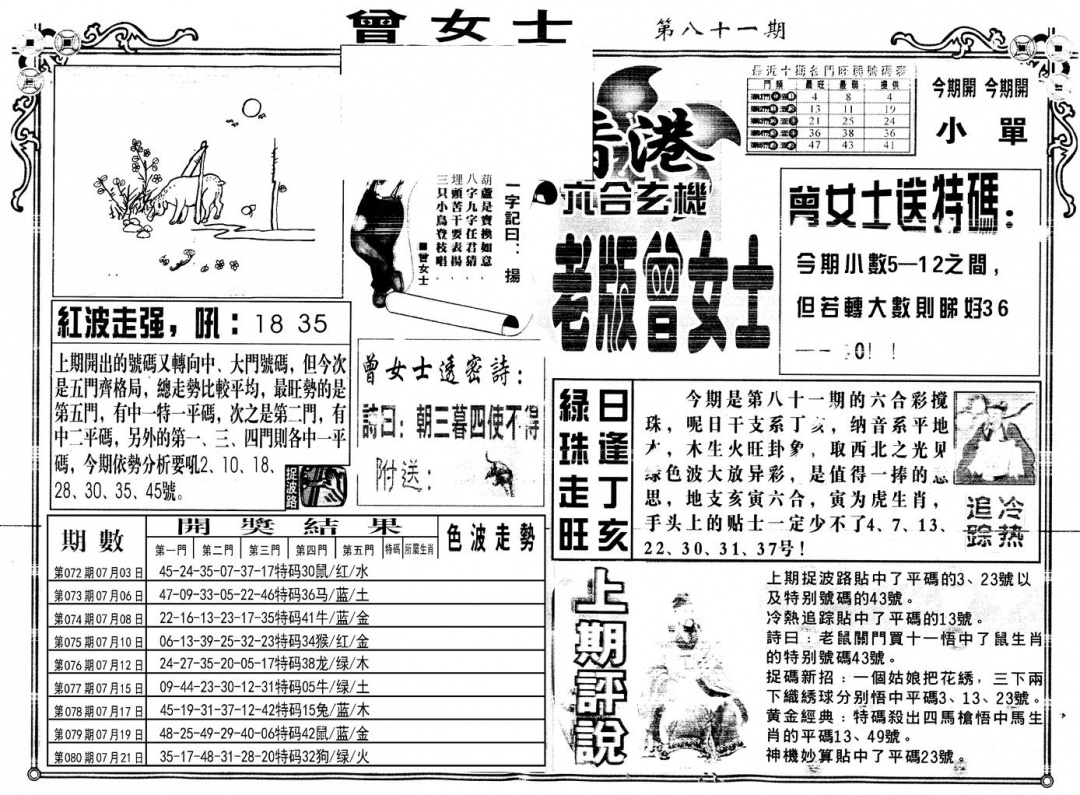 曾女士
第八十一期
最近十期各門旺弱號碼表
門類 最旺 最弱 提供
4 8 4
13 11 19
21 25 24
36 38 36
47 43 41
今期開 今期開
小 單
一字記曰：揚
葫蘆是寶換如意，
八字九字任君猜，
埋頭苦干要表揚，
三只小鳥登枝唱。
■曾女士
香港
六合玄機
老版曾女士
曾女士送特碼：
今期小數5—12之間，
但若轉大數則睇好36
紅波走强，吼：18 35
上期開出的號碼又轉向中、大門號碼，但今次
是五門齊格局，總走勢比較平均，最旺勢的是
第五門，有中一特一平碼，次之是第二門，有
中二平碼，另外的第一、三、四門則各中一平
碼，今期依勢分析要吼2、10、18、
28、30、35、45號。
捉波路
曾女士透密詩：
詩曰：朝三暮四使不得
附送：
綠珠走旺
日逢丁亥
今期是第八十一期的六合彩搅
珠，呢日干支系丁亥，纳音系平地
木，木生火旺卦象，取西北之光见
绿色波大放异彩，是值得一捧的意
思，地支亥寅六合，寅为虎生肖，
手头上的贴士一定少不了4、7、13、
22、30、31、37号！
冷热
追踪
期數 開獎結果 色波走勢
第一門 第二門 第三門 第四門 第五門 特碼 所屬生肖
第072期07月03日 45-24-35-07-37-17特码30鼠/红/水
第073期07月06日 47-09-33-05-22-46特码36马/蓝/土
第074期07月08日 22-16-13-23-17-35特码41牛/蓝/金
第075期07月10日 06-13-39-25-32-23特码34猴/红/金
第076期07月12日 24-27-35-20-05-17特码38龙/绿/木
第077期07月15日 09-44-23-30-12-31特码05牛/绿/土
第078期07月17日 45-19-31-37-12-42特码15兔/蓝/木
第079期07月19日 48-25-49-29-40-06特码42鼠/蓝/金
第080期07月21日 35-17-48-31-28-20特码32狗/绿/火
上期評說
上期捉波路貼中了平碼的3、23號以
及特别號碼的43號。
冷熱追踪貼中了平碼的13號。
詩曰：老鼠關門買十一悟中了鼠生肖
的特别號碼43號。
捉碼新招：一個姑娘把花綉，三下兩
下織綉球分别悟中平碼3、13、23號。
黄金經典：特碼殺出四馬槍悟中馬生
肖的平碼13、49號。
神機妙算貼中了平碼23號。